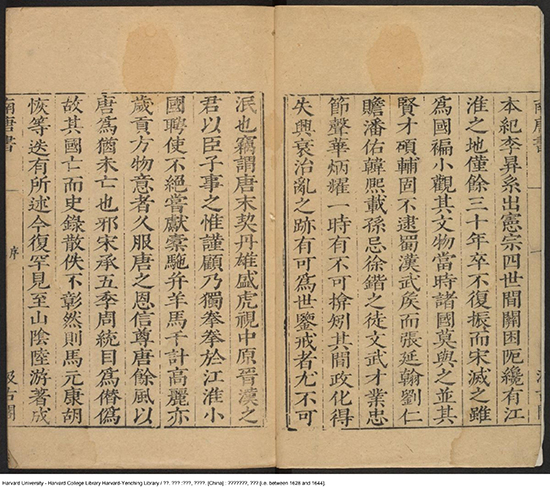 本紀李昪系出憲宗四世間關困阨纔有江
淮之地僅餘三十年卒不復振而宋滅之雖
爲國褊小觀其文物當時諸國莫與之並其
賢才碩輔固不逮蜀漢武矦而張延翰劉仁
贍潘佑韓熙載孫忌徐鍇之徒文武才業忠
節聲華炳燿一時有不可揜矧其間政化得
失興衰治亂之跡有可爲世鑒戒者尤不可
泯也竊謂唐末契丹雄盛虎視中原晉漢之
君以臣子事之惟謹顧乃獨拳拳於江淮小
國聘使不絕嘗獻橐駞并羊馬千計高麗亦
歲貢方物意者久服唐之恩信尊唐餘風以
唐爲猶未亡也邪宋承五季周統目爲僭僞
故其國亡而史錄散佚不彰然則馬元康胡
恢等迭有所述今復罕見至山陰陸游著成
南唐書 一 序 汲古閣
Harvard University - Harvard College Library Harvard-Yenching Library / ??. ??? :???, ????. [China] : ???????, ??? [i.e. between 1628 and 1644].